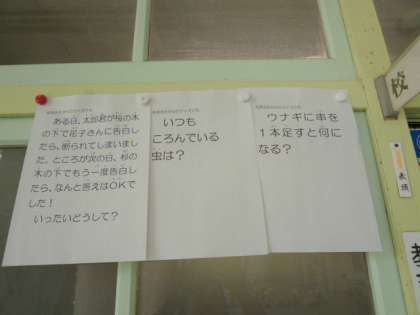 ある日、太郎君が桜の木
の下で花子さんに告白し
たら、断られてしまいまし
た。ところが次の日、杉の
木の下でもう一度告白し
たら、なんと答えはOKで
した!
いったいどうして?
いつも
ころんでいる
虫は?
ウナギに串を
1本足すと何に
なる?
校
表札